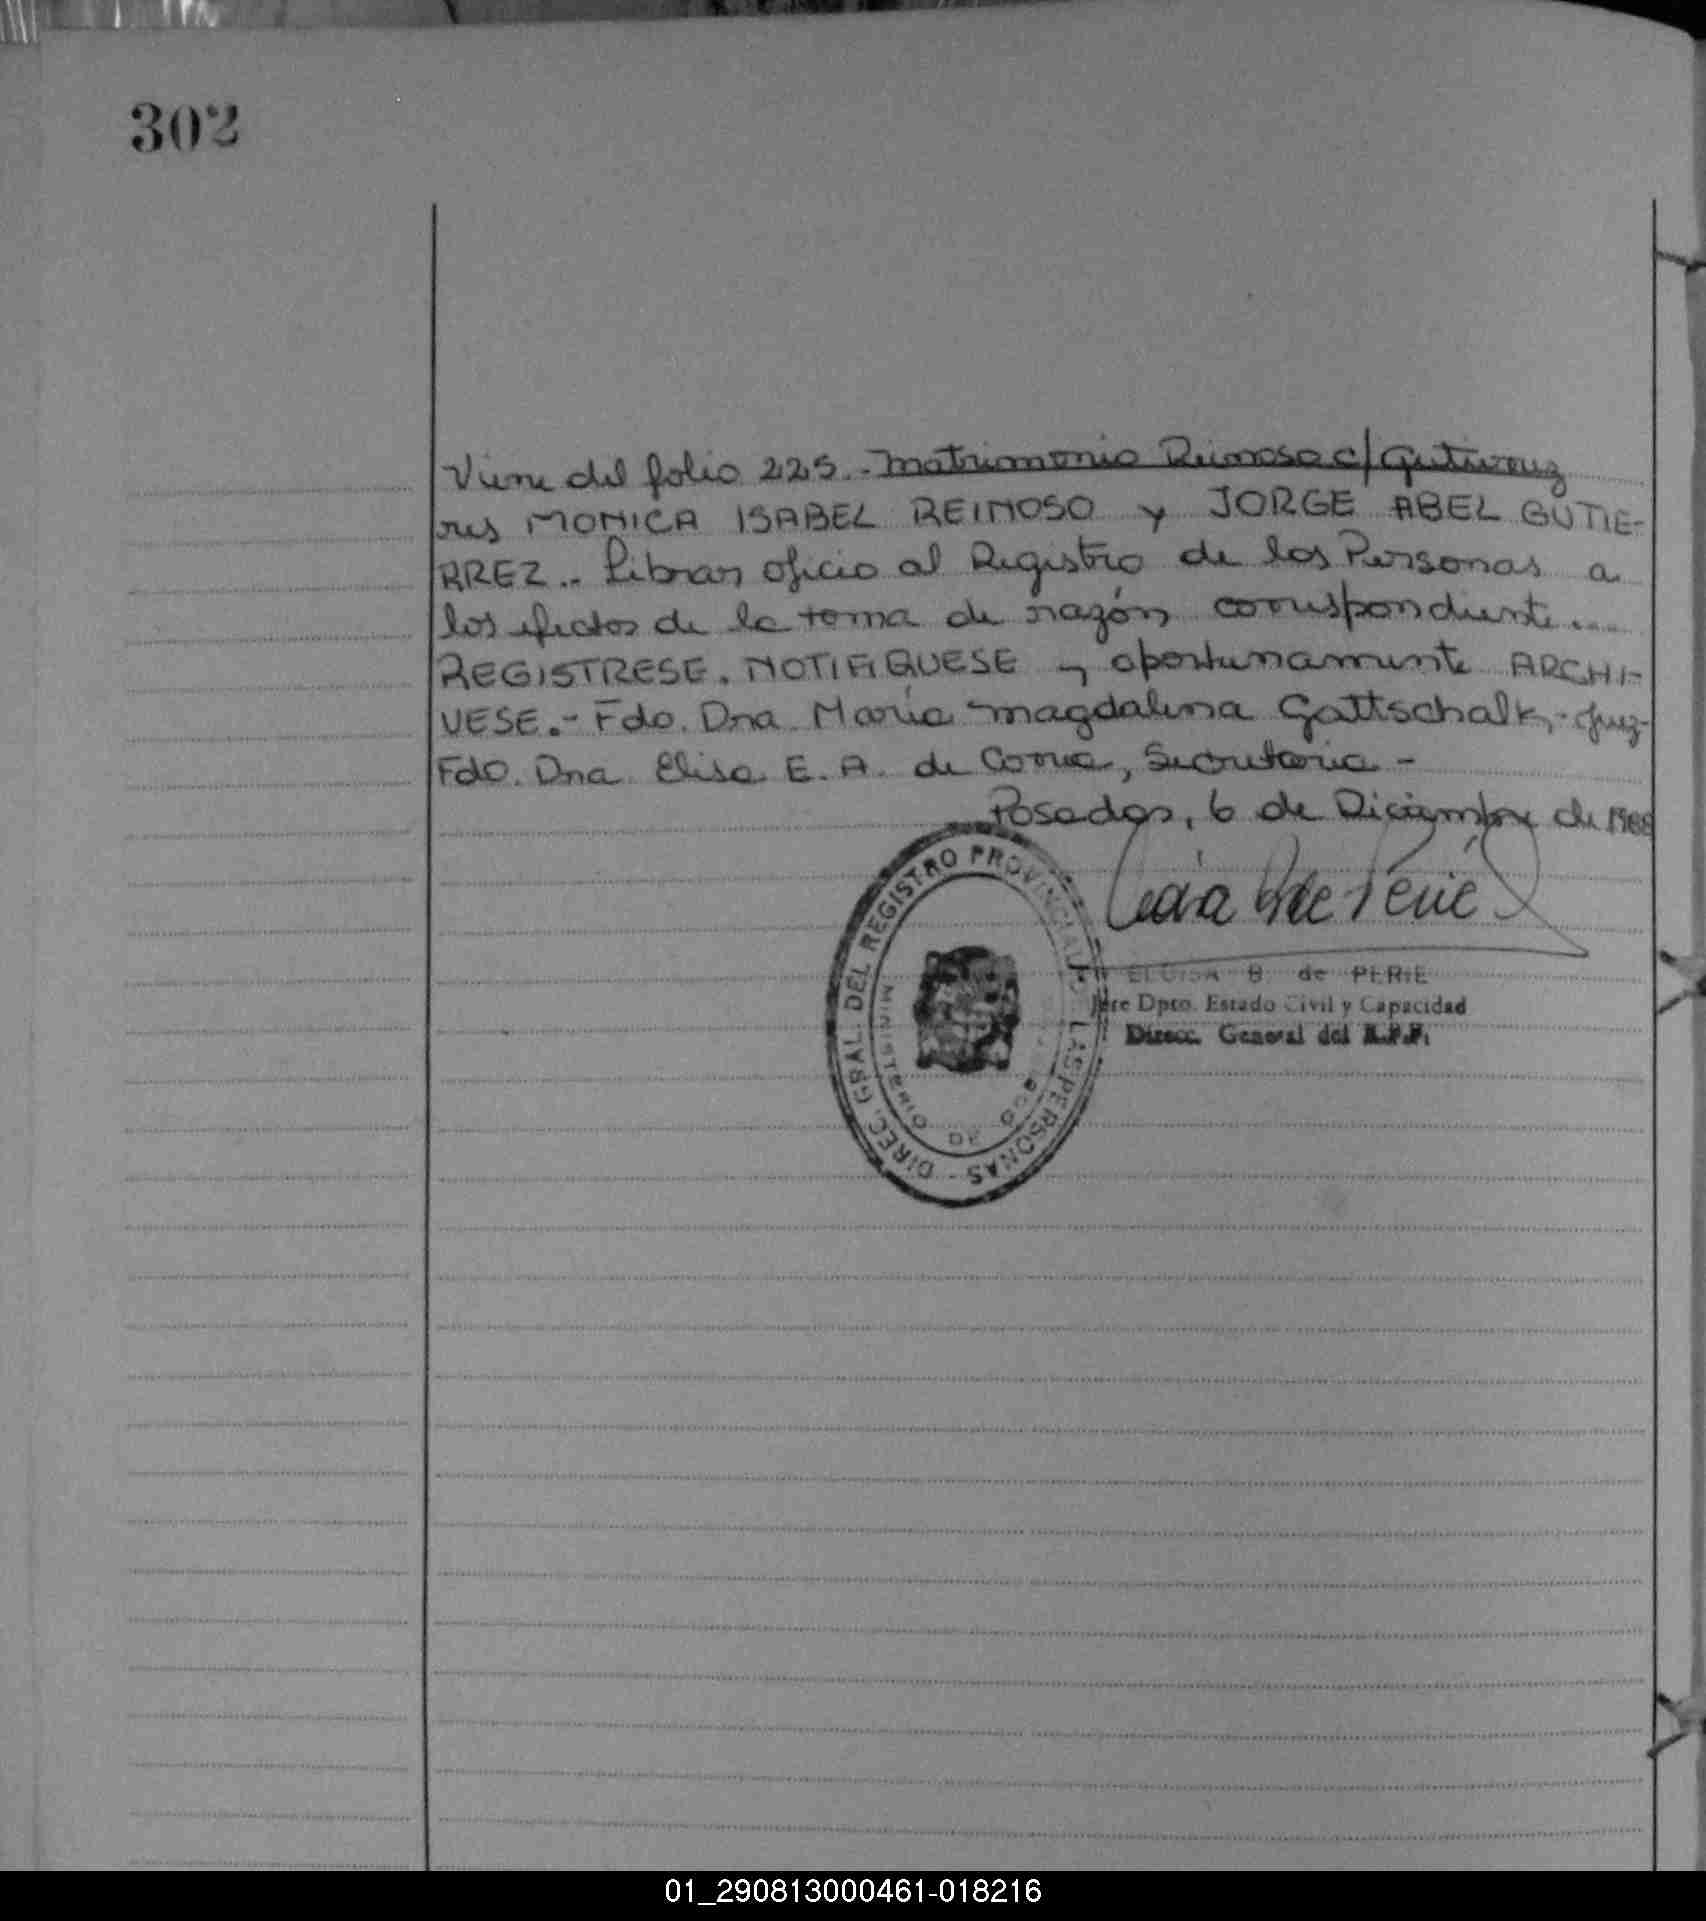 302
Viene del folio 225.- Matrimonio Reimoso c/ Gutierrez
res MONICA ISABEL REIMOSO y JORGE ABEL GUTIE-
RREZ.. Librar oficio al Registro de las Personas a
los efectos de la toma de razón correspondiente....
REGISTRESE. NOTIFIQUESE y oportunamente ARCHI-
VESE.- Fdo. Dra. María Magdalena Gattschalk,- Juez-
Fdo. Dra. Elisa E. A. de Correa, Secretaria -
Posadas, 6 de Diciembre de 1988
DIREC. GRAL. DEL REGISTRO PROVINCIAL DE LAS PERSONAS -
MINISTERIO DE GOBIERNO
ELOISA B de PERIE
Jefe Dpto. Estado Civil y Capacidad
Direcc. General del R.P.P.
01_290813000461-018216